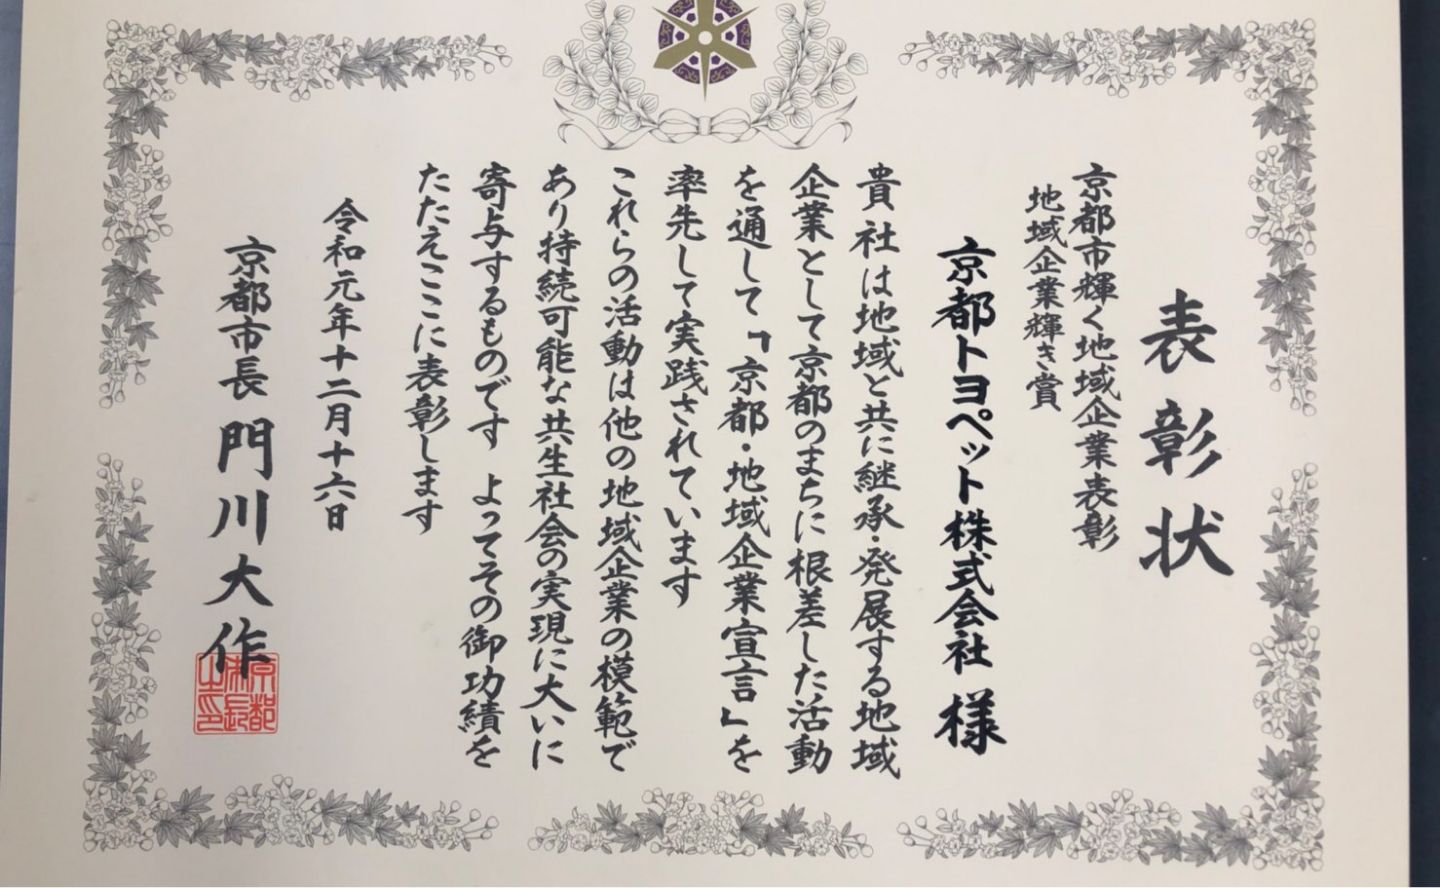 表彰状
京都市輝く地域企業表彰
地域企業輝き賞
京都トヨペット株式会社 様
貴社は地域と共に継承・発展する地域
企業として京都のまちに根差した活動
を通して「京都・地域企業宣言」を
率先して実践されています
これらの活動は他の地域企業の模範で
あり持続可能な共生社会の実現に大いに
寄与するものです よってその御功績を
たたえここに表彰します
令和元年十二月十六日
京都市長 門川大作
京都
市長
之印